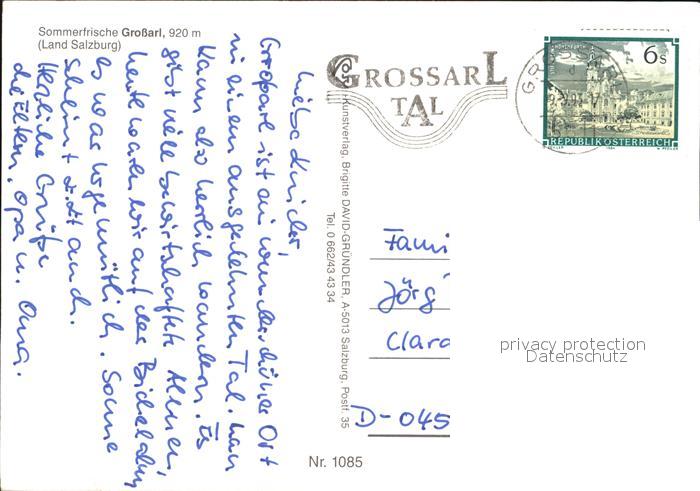 Sommerfrische Großarl, 920 m
(Land Salzburg)
Liebe Kinder,
Großarl ist ein wunderschöner Ort
in einem ausgedehnten Tal. Man
kann also herrlich wandern. Es
gibt viele bewirtschaftete Almen
heute waren wir auf der
es war urgemütlich. Sonne
scheint z. Zt. auch.
Herzliche Grüße
die Eltern. Opa u. Oma.
Kunstverlag, Brigitte DAVID-GRÜNDLER, A-5013 Salzburg, Postf. 35
Tel. 0 662/43 43 34
Nr. 1085
GROSSARL
TAL
6 S
REPUBLIK ÖSTERREICH
Fami
Jörg
Clara
D-045
privacy protection
Datenschutz